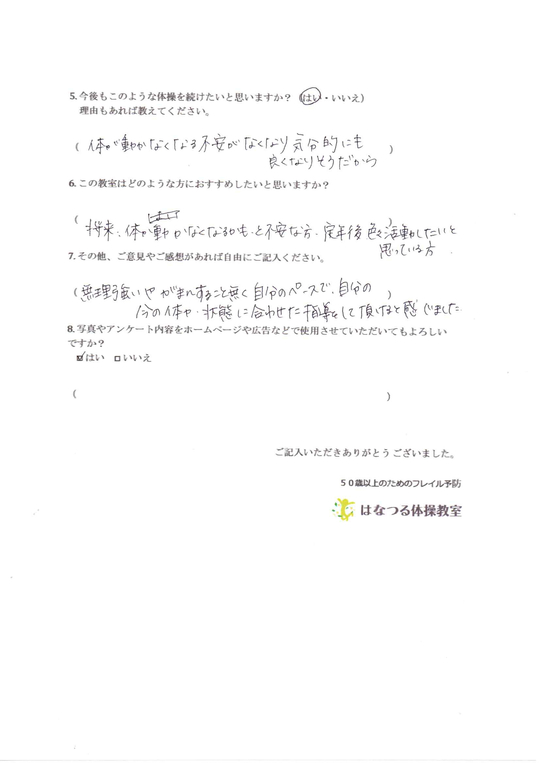 5. 今後もこのような体操を続けたいと思いますか？（はい・いいえ）
理由もあれば教えてください。
（体が動かなくなる不安がなくなり気分的にも）
良くなりそうだから
6. この教室はどのような方におすすめしたいと思いますか？
（将来、体が動かなくなるかも、と不安な方、定年後色々活動したいと）
思っている方
7. その他、ご意見やご感想があれば自由にご記入ください。
（無理強いやがまんすること無く自分のペースで、自分の）
今の体や状態に合わせた指導をして頂けると感じました
8. 写真やアンケート内容をホームページや広告などで使用させていただいてもよろしい
ですか？
☑はい □いいえ
（ ）
ご記入いただきありがとうございました。
５０歳以上のためのフレイル予防
はなつる体操教室